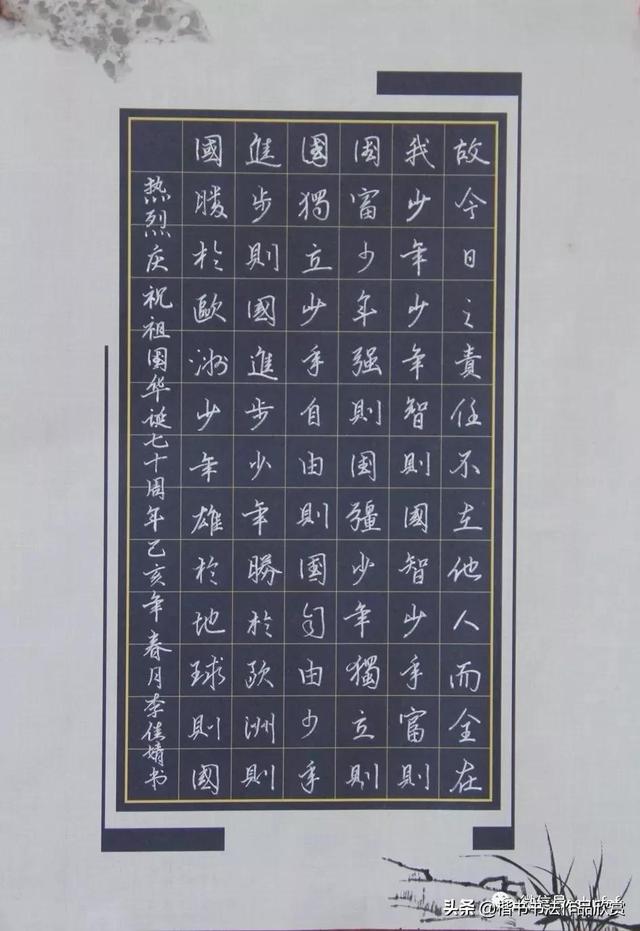 故今日之責任不在他人而全在
我少年少年智則國智少年富則
国富少年强則国彊少年獨立則
国獨立少年自由則国自由少年
進步則國進步少年勝於欧洲則
國勝於歐洲少年雄於地球則國
热烈庆祝祖国华诞七十周年己亥年春月李佳婧书
头条 @楷书书法作品欣赏